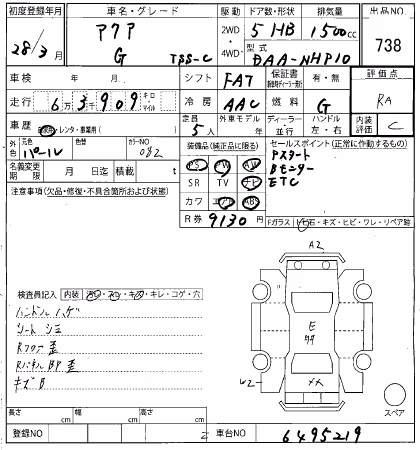 初度登録年月 車名・グレード 駆動 ドア数・形状 排気量 出品NO
28/3月 アクア G TSS-C 2WD 4WD 5 HB 1500cc 738
型式 DAA-NHP10
車検 年 月 シフト FAT 保証書 有・無 評価点
走行 6万3千909 キロ・マイル 冷房 AAC 燃料 G RA
車歴 自家用・レンタ・事業用( ) 定員 5人 外車モデル ディーラー 並行 ハンドル 左・右 内装評価 C
外色 元色 パール 色替 カラーNO 082
名義変更期限 月 日迄 積載 t
装備品(純正品に限る)
PS PW AW
SR TV ナビ
カワ エアB ABS
R券 9130 円
セールスポイント(正常に作動するもの)
Pスタート
Bモニター
ETC
注意事項(欠品・修復・不具合箇所および状態)
Fガラス トビ石・キズ・ヒビ・ワレ・リペア跡
検査員記入 内装 汚レ・スレ・キズ・キレ・コゲ・穴
ハンドル ハゲ
シート シミ
Rフロア 歪
RパネルBP 歪
キズB
A2
E
W2
スペア
長さ cm 幅 cm 高さ cm
登録NO 車台NO 6495219